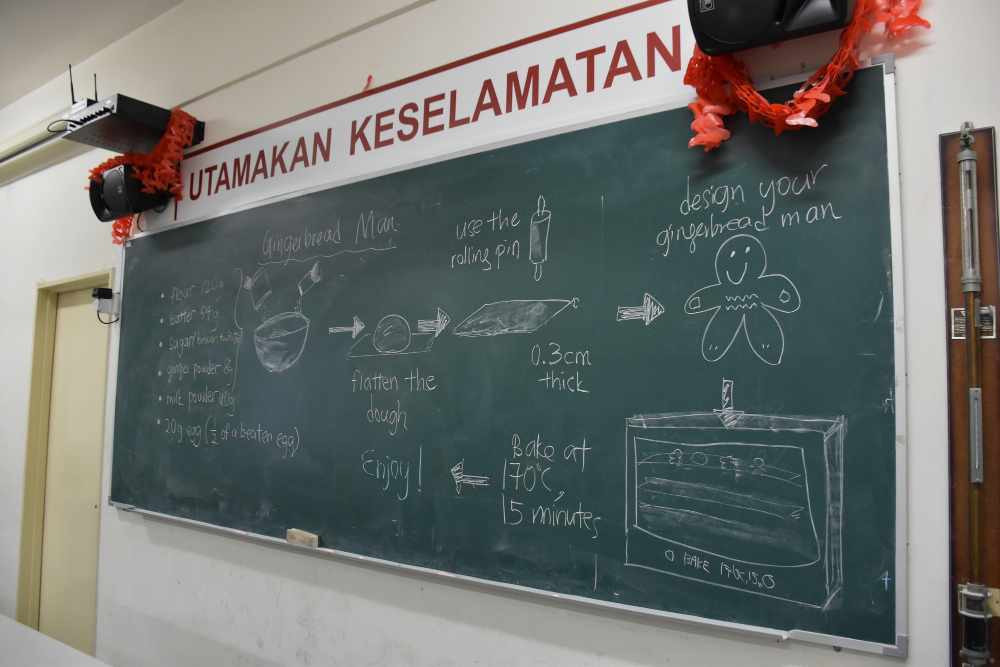 UTAMAKAN KESELAMATAN
Gingerbread Man
flour 120g
butter
sugar/brown
ginger powder
milk powder
20g egg (½ of a beaten egg)
flatten the
dough
use the
rolling pin
0.3cm
thick
design your
gingerbread man
BAKE
Bake at
170°C,
15 minutes
Enjoy!